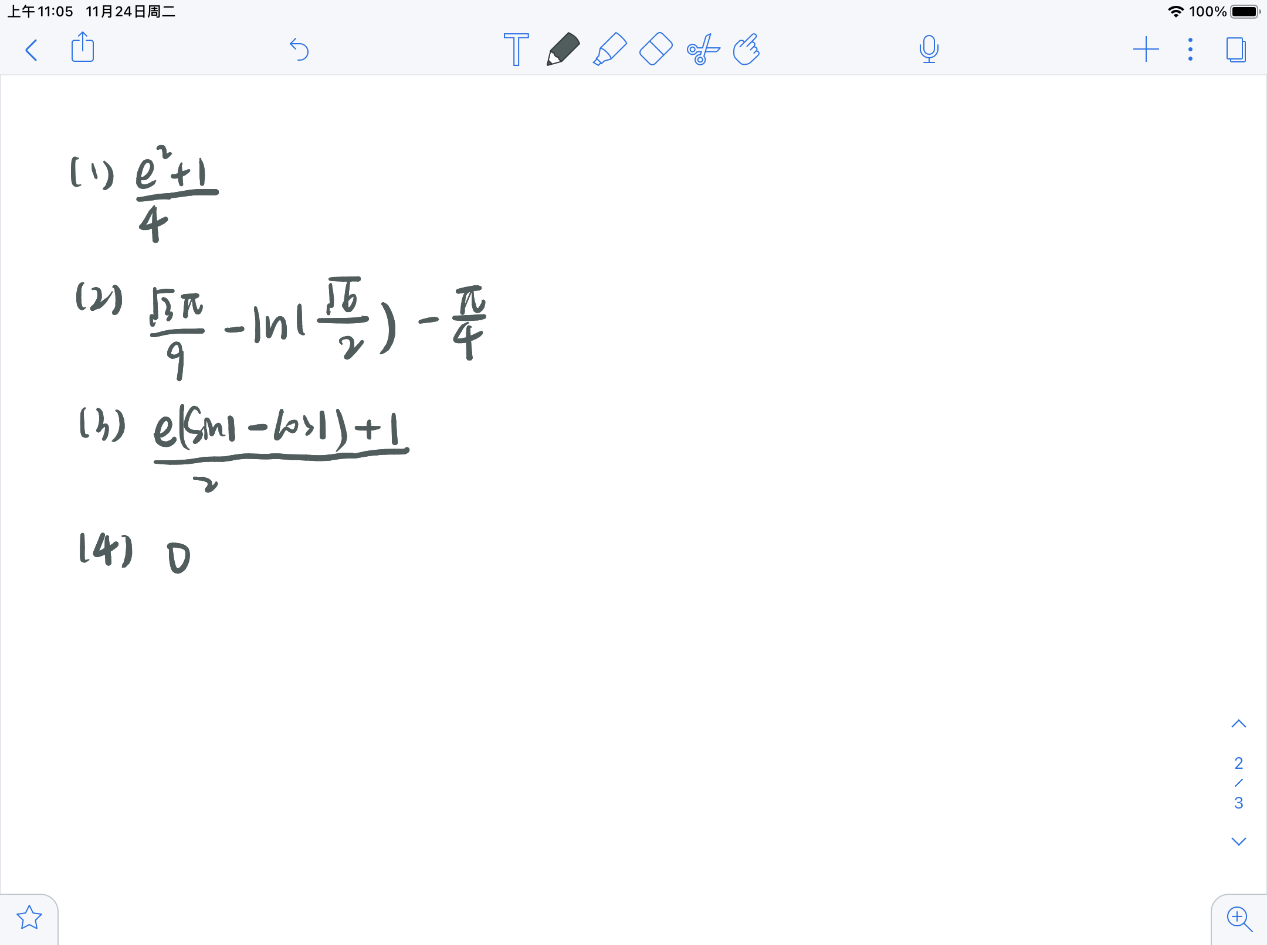 上午11:05 11月24日周二 100%
T
(1) \frac{e^2+1}{4}
(2) \frac{\sqrt{3}π}{9} - ln(\frac{\sqrt{6}}{2}) - \frac{π}{4}
(3) \frac{e(sin1-cos1)+1}{2}
(4) 0
2
/
3